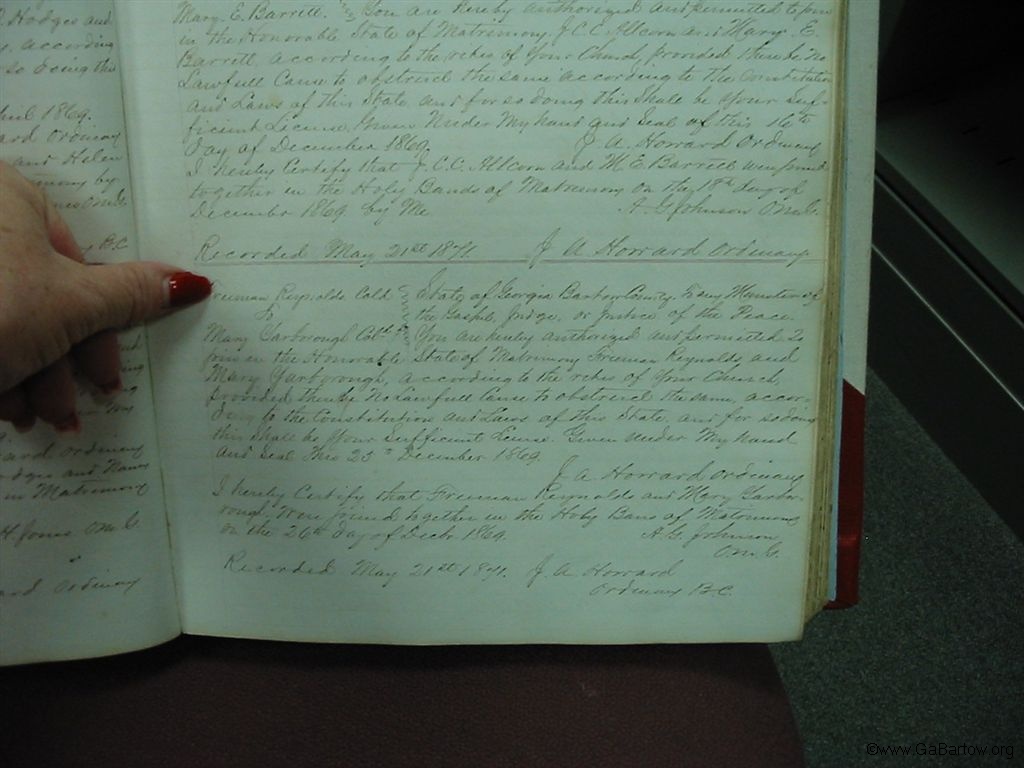 Hodges and
according
so doing this
April 1869.
ard Ordinary
and Helen
mony by
ones O.M.G.
B.C.
ard Ordinary
dges and Nancy
in Matrimony
H. Jones O.M.G.
ard Ordinary
Mary E. Barrett. You are hereby authorized and permitted to join
in the Honorable State of Matrimony J.C.C. Allcorn and Mary E.
Barrett, according to the rites of Your Church, provided there be No
Lawfull Cause to obstruct the same according to the Constitution
and Laws of this State, and for so doing this shall be Your Suf-
ficient License, Given Under My hand and Seal of this 16th
day of December 1869. J. A. Howard Ordinary
I hereby Certify that J.C.C. Allcorn and M.E. Barrett were joined
together in the Holy Bands of Matrimony on the 18th day of
December 1869 by Me A. G. Johnson O.M.G.
Recorded May 21st 1871. J. A. Howard Ordinary
Freeman Reynolds Cold State of Georgia Bartow County. To any Minister of
& the Gospel, Judge, or Justice of the Peace.
Mary Yarborough Cold You are hereby authorized and permitted to
join in the Honorable State of Matrimony Freeman Reynolds, and
Mary Yarborough, according to the rites of Your Church,
provided there be No Lawfull Cause to obstruct the same, accor-
ding to the Constitution and Laws of this State, and for so doing
this shall be Your Sufficient License. Given under My hand
and Seal this 25th December 1869.
J. A. Howard Ordinary
I hereby Certify that Freeman Reynolds and Mary Yarbo-
rough Were joined together in the Holy Bans of Matrimony
on the 26th day of Decbr 1869. A. G. Johnson
O.M.G.
Recorded May 21st 1871. J. A. Howard
Ordinary B.C.
©www.GaBartow.org